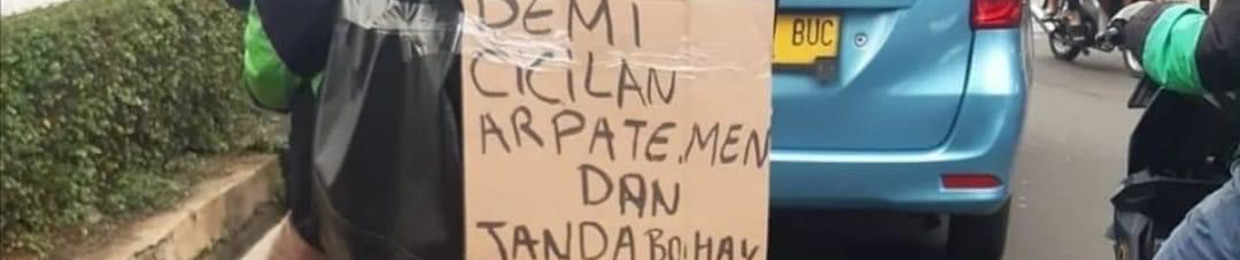 DEMI
CICILAN
ARPATE.MEN
DAN
JANDA BOHAY
BUC